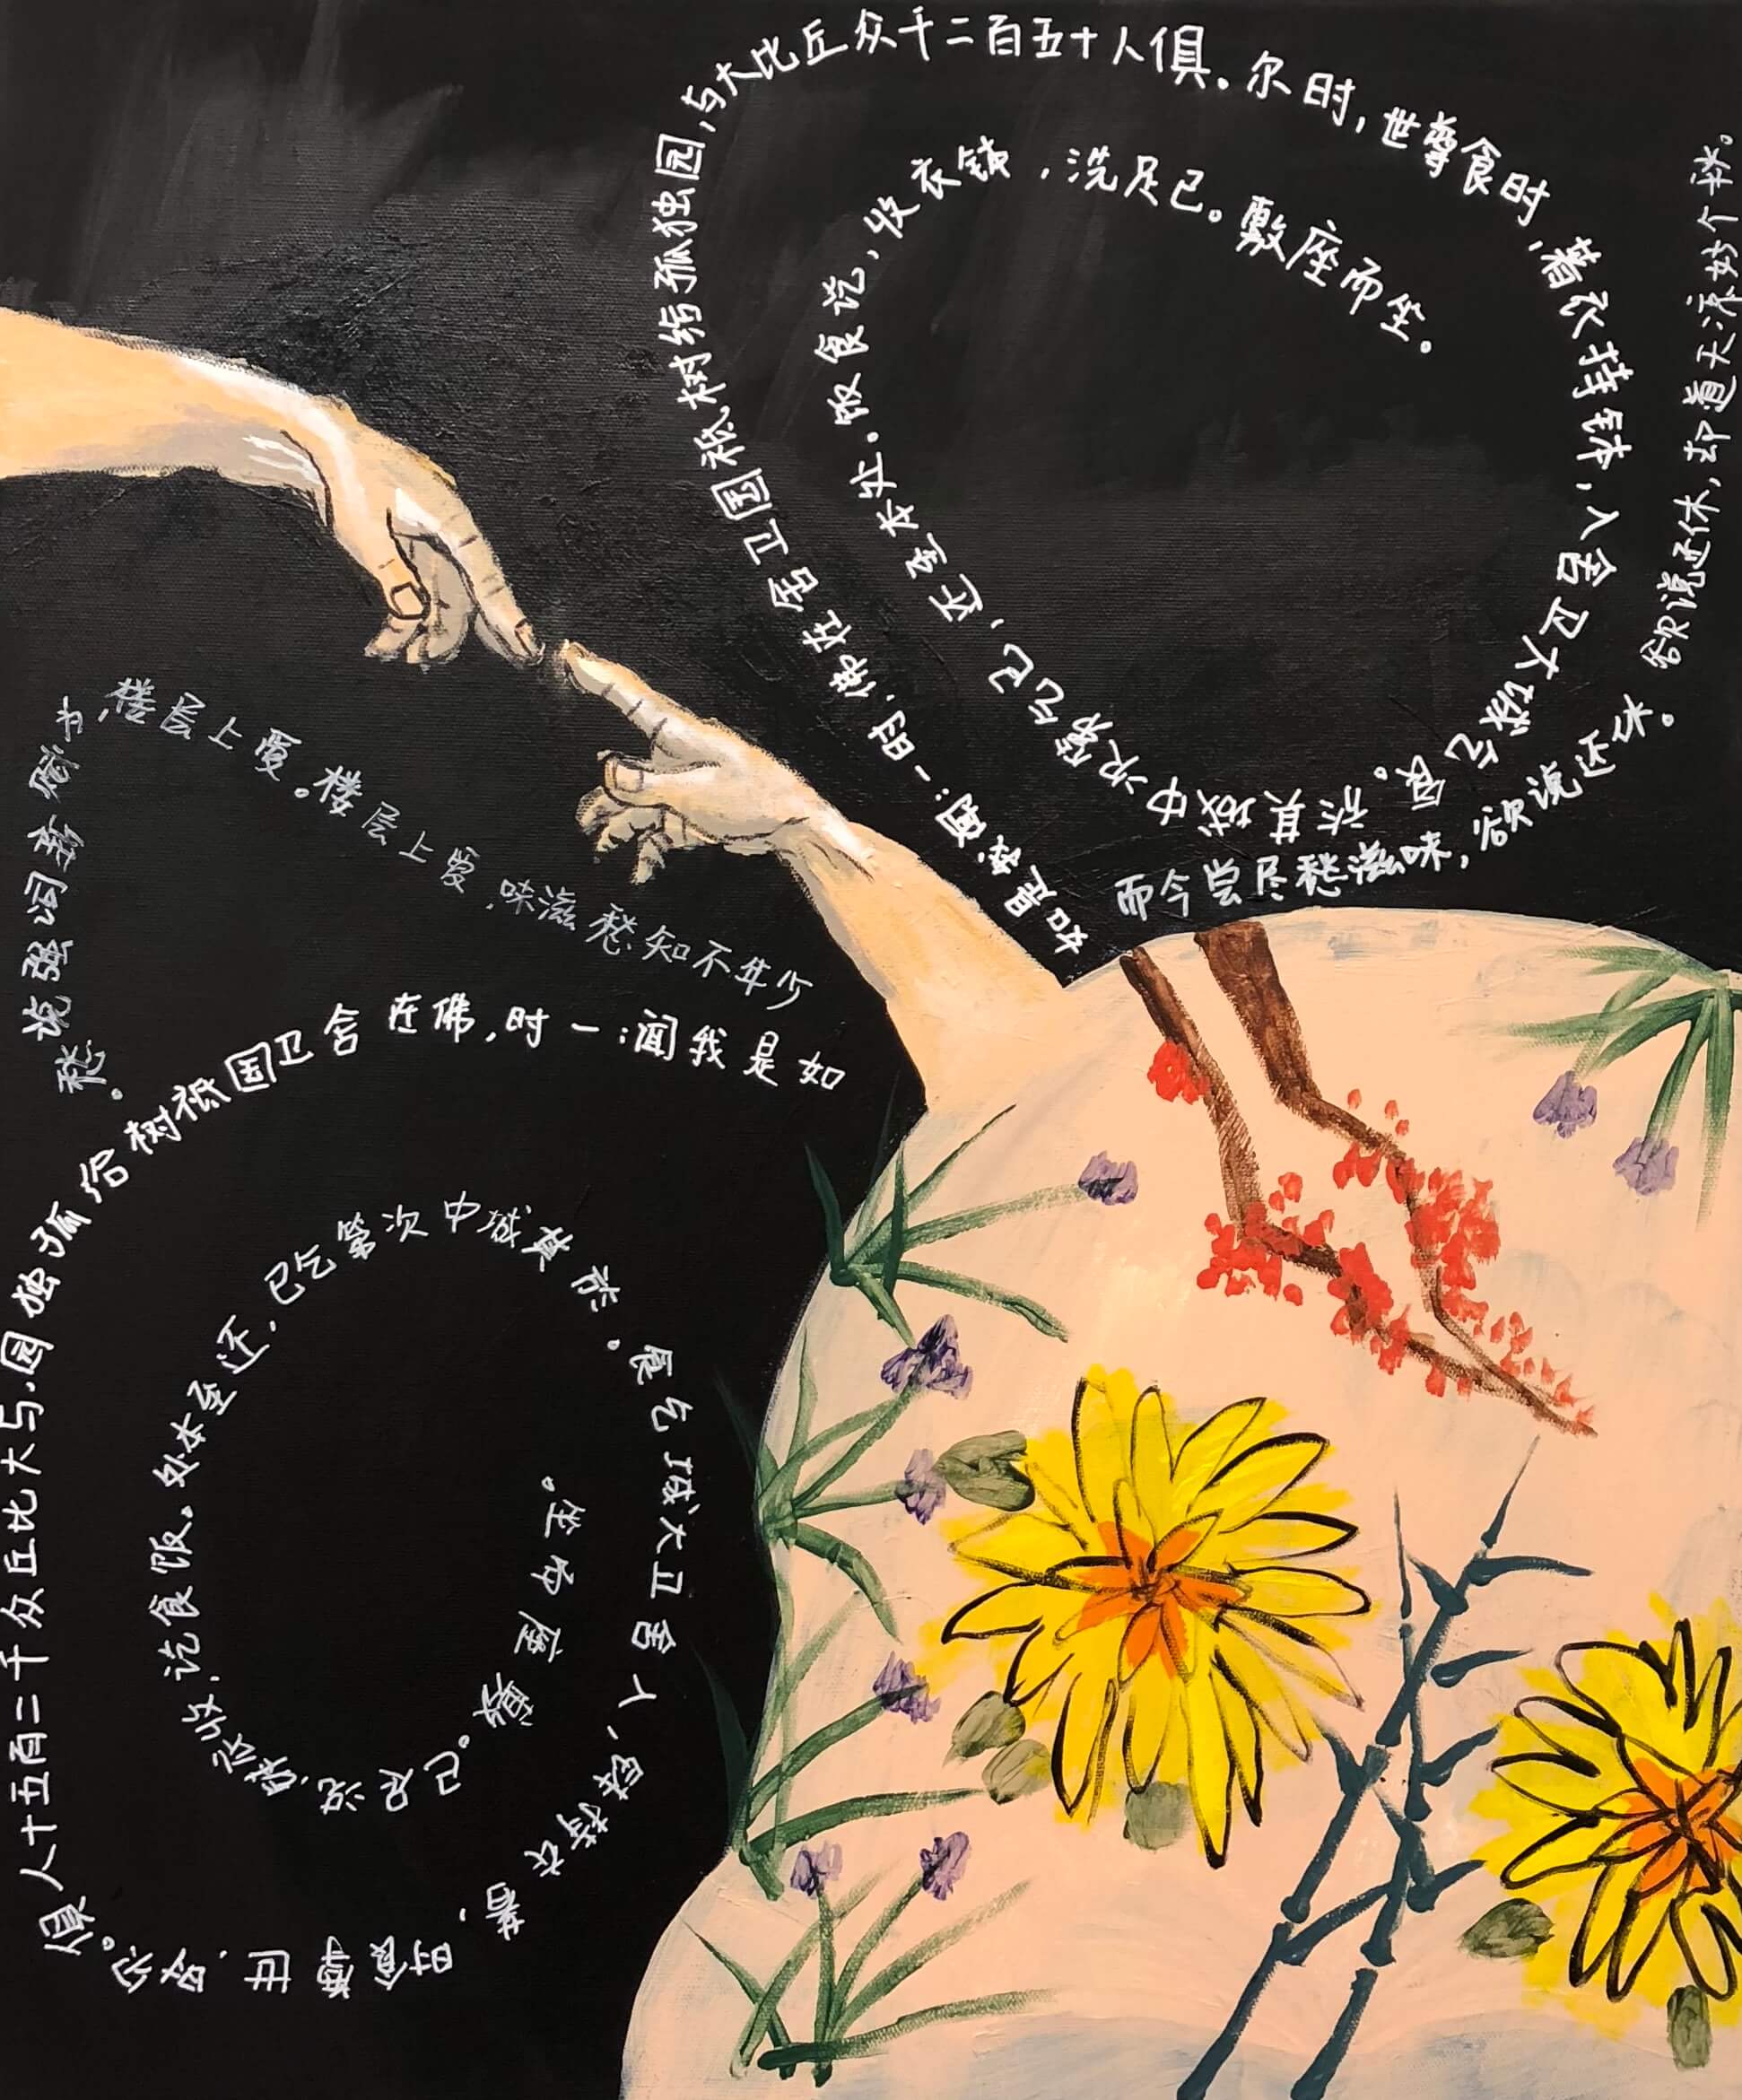 如是我闻：一时，佛在舍卫国祇树给孤独园，与大比丘众千二百五十人俱。尔时，世尊食时，著衣持钵，入舍卫大城乞食。於其城中次第乞已，还至本处。饭食讫，收衣钵，洗足已。敷座而坐。
而今尝尽愁滋味，欲说还休。欲说还休，却道天凉好个秋。
少年不知愁滋味，爱上层楼。爱上层楼，为赋新词强说愁。
如是我闻：一时，佛在舍卫国祇树给孤独园，与大比丘众千二百五十人俱。尔时，世尊食时，著衣持钵，入舍卫大城乞食。於其城中次第乞已，还至本处。饭食讫，收衣钵，洗足已。敷座而坐。